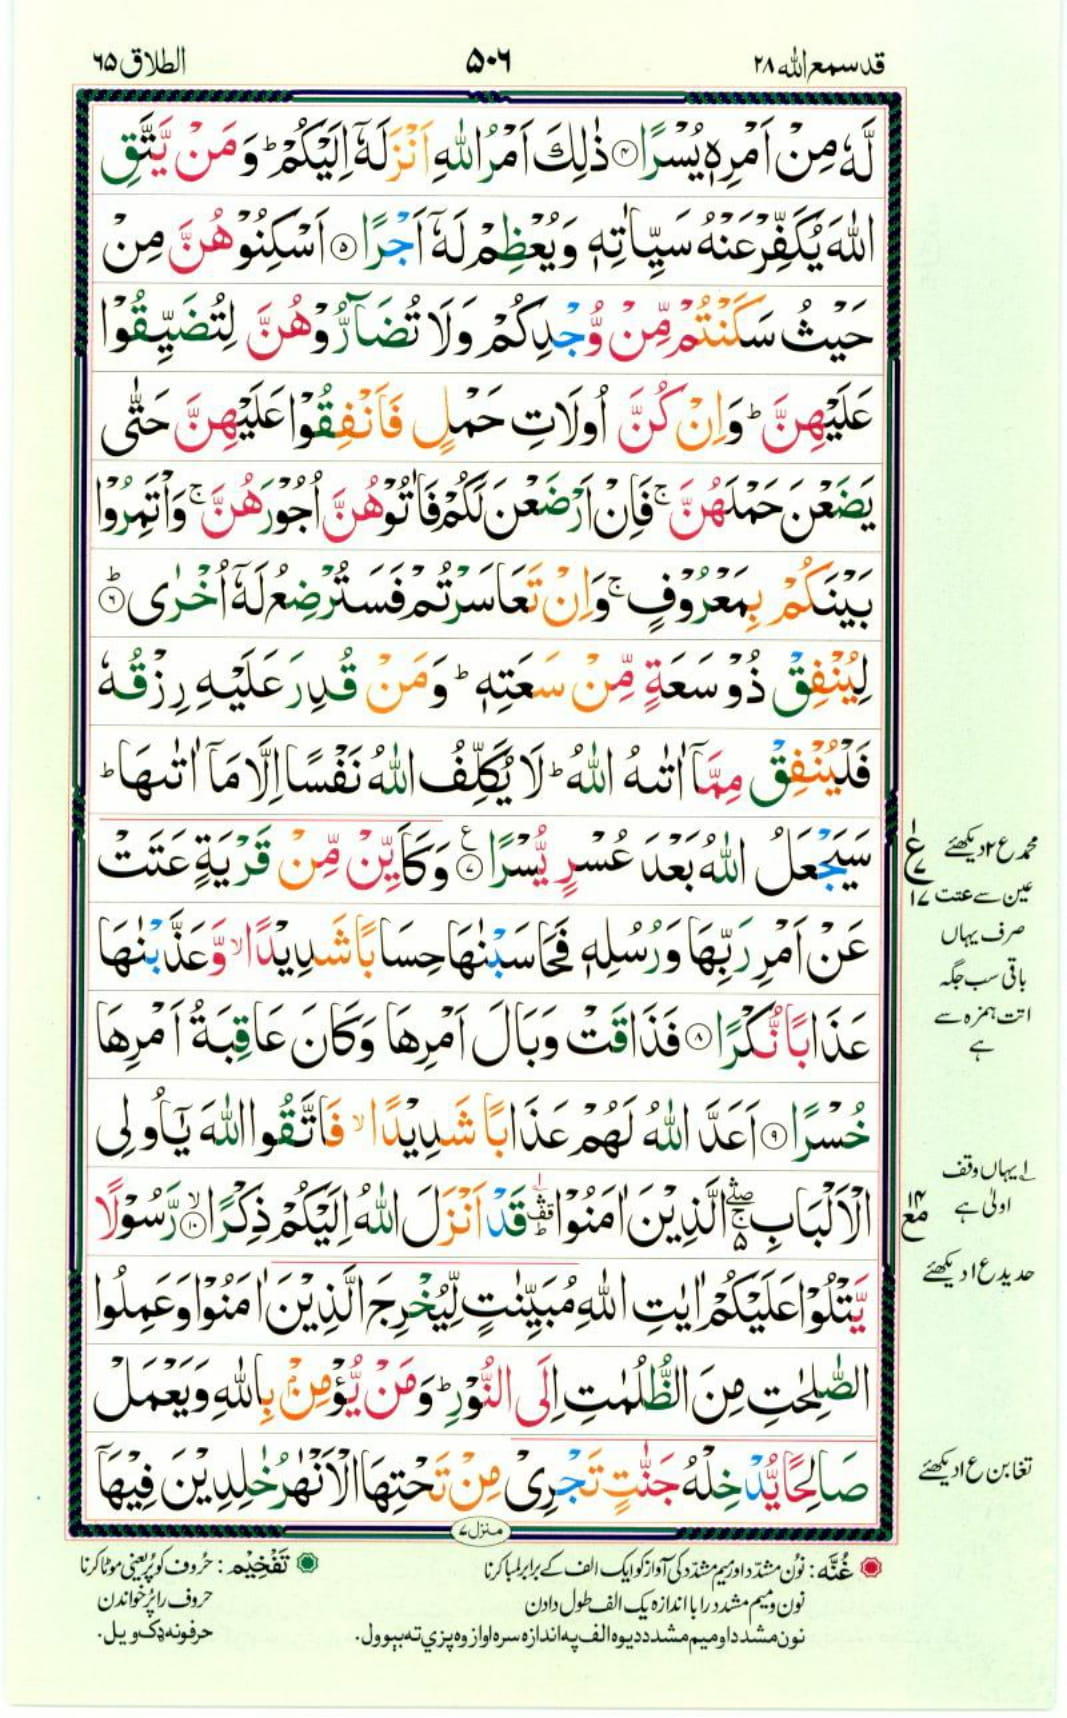 قد سمع الله ۲۸
۵۰۶
الطلاق ۶۵
لَّهٗ مِنْ اَمْرِهٖ يُسْرًا ۴ ذٰلِكَ اَمْرُ اللّٰهِ اَنْزَلَهٗۤ اِلَيْكُمْ ؕ وَ مَنْ يَّتَّقِ
اللّٰهَ يُكَفِّرْ عَنْهُ سَيِّاٰتِهٖ وَيُعْظِمْ لَهٗۤ اَجْرًا ۵ اَسْكِنُوْهُنَّ مِنْ
حَيْثُ سَكَنْتُمْ مِّنْ وُّجْدِكُمْ وَلَا تُضَآرُّوْهُنَّ لِتُضَيِّقُوْا
عَلَيْهِنَّ ؕ وَاِنْ كُنَّ اُولَاتِ حَمْلٍ فَاَنْفِقُوْا عَلَيْهِنَّ حَتّٰى
يَضَعْنَ حَمْلَهُنَّ ۚ فَاِنْ اَرْضَعْنَ لَكُمْ فَاٰتُوْهُنَّ اُجُوْرَهُنَّ ۚ وَاْتَمِرُوْا
بَيْنَكُمْ بِمَعْرُوْفٍ ۚ وَاِنْ تَعَاسَرْتُمْ فَسَتُرْضِعُ لَهٗۤ اُخْرٰى ؕ ۶
لِيُنْفِقْ ذُوْ سَعَةٍ مِّنْ سَعَتِهٖ ؕ وَمَنْ قُدِرَ عَلَيْهِ رِزْقُهٗ
فَلْيُنْفِقْ مِمَّاۤ اٰتٰىهُ اللّٰهُ ؕ لَا يُكَلِّفُ اللّٰهُ نَفْسًا اِلَّا مَاۤ اٰتٰىهَا ؕ
سَيَجْعَلُ اللّٰهُ بَعْدَ عُسْرٍ يُّسْرًا ۷ ع وَكَاَيِّنْ مِّنْ قَرْيَةٍ عَتَتْ
عَنْ اَمْرِ رَبِّهَا وَرُسُلِهٖ فَحَاسَبْنٰهَا حِسَابًا شَدِيْدًا ۙ وَّعَذَّبْنٰهَا
عَذَابًا نُّكْرًا ۸ فَذَاقَتْ وَبَالَ اَمْرِهَا وَكَانَ عَاقِبَةُ اَمْرِهَا
خُسْرًا ۹ اَعَدَّ اللّٰهُ لَهُمْ عَذَابًا شَدِيْدًا ۙ فَاتَّقُوا اللّٰهَ يٰۤاُولِى
الْاَلْبَابِ ۛۚ الَّذِيْنَ اٰمَنُوْا ۛؕ قَدْ اَنْزَلَ اللّٰهُ اِلَيْكُمْ ذِكْرًا ۙ ۱۰ رَّسُوْلًا
يَّتْلُوْا عَلَيْكُمْ اٰيٰتِ اللّٰهِ مُبَيِّنٰتٍ لِّيُخْرِجَ الَّذِيْنَ اٰمَنُوْا وَعَمِلُوا
الصّٰلِحٰتِ مِنَ الظُّلُمٰتِ اِلَى النُّوْرِ ؕ وَمَنْ يُّؤْمِنْۢ بِاللّٰهِ وَيَعْمَلْ
صَالِحًا يُّدْخِلْهُ جَنّٰتٍ تَجْرِىْ مِنْ تَحْتِهَا الْاَنْهٰرُ خٰلِدِيْنَ فِيْهَاۤ
منزل ۷
محمد ع ۲ دیکھئے
ع ۷ ۱۷
عین سے عتت
صرف یہاں
باقی سب جگہ
اتت ہمزہ سے
ہے
۱؎ یہاں وقف
اولیٰ ہے
مع ۱۴
حدید ع ۱ دیکھئے
تغابن ع ۱ دیکھئے
غُنَّه : نوُن مشدّد اور میم مشدّد کی آواز کو ایک الف کے برابر لمبا کرنا
نون و میم مشدد را با اندازہ یک الف طول دادن
نون مشدد او میم مشدد دیوہ الف پہ اندازہ سرہ اواز وہ پزي تہ بېوول.
تَفْخِيْم : حُروف کو پُر یعنی موٹا کرنا
حروف را پُر خواندن
حرفونہ ډک ویل.